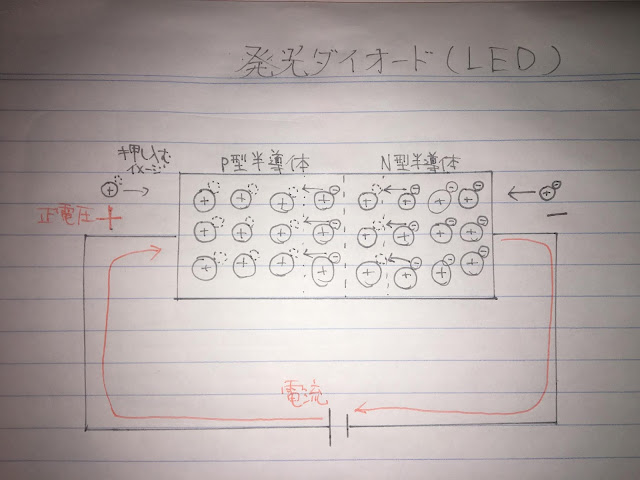 発光ダイオード(LED)
押し込む
イメージ
P型半導体
N型半導体
正電圧 +
−
電流